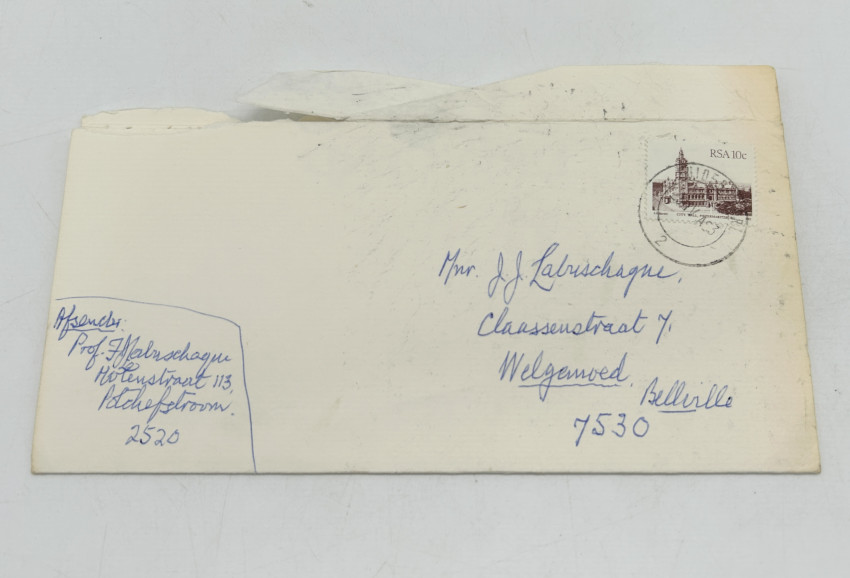 RSA 10c
CITY HALL
2
Mnr. J. J. Labuschagne,
Claassenstraat 7.
Welgemoed.
Bellville
7530
Afsender.
Prof. F J Labuschagne
straat 113,
Potchefstroom.
2520